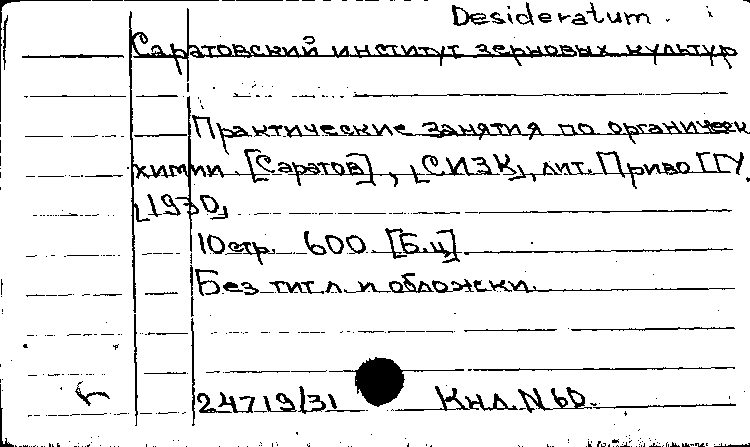 Desideratum.
Саратовский институт зерновых культур
Практические занятия по органическ
химии. [Саратов], [СИЗК], лит. Приво ГГУ,
[1930]
10 стр. 600 [Б.ц].
Без тит.л. и обложки.
24719/31 Кнл. N 60.